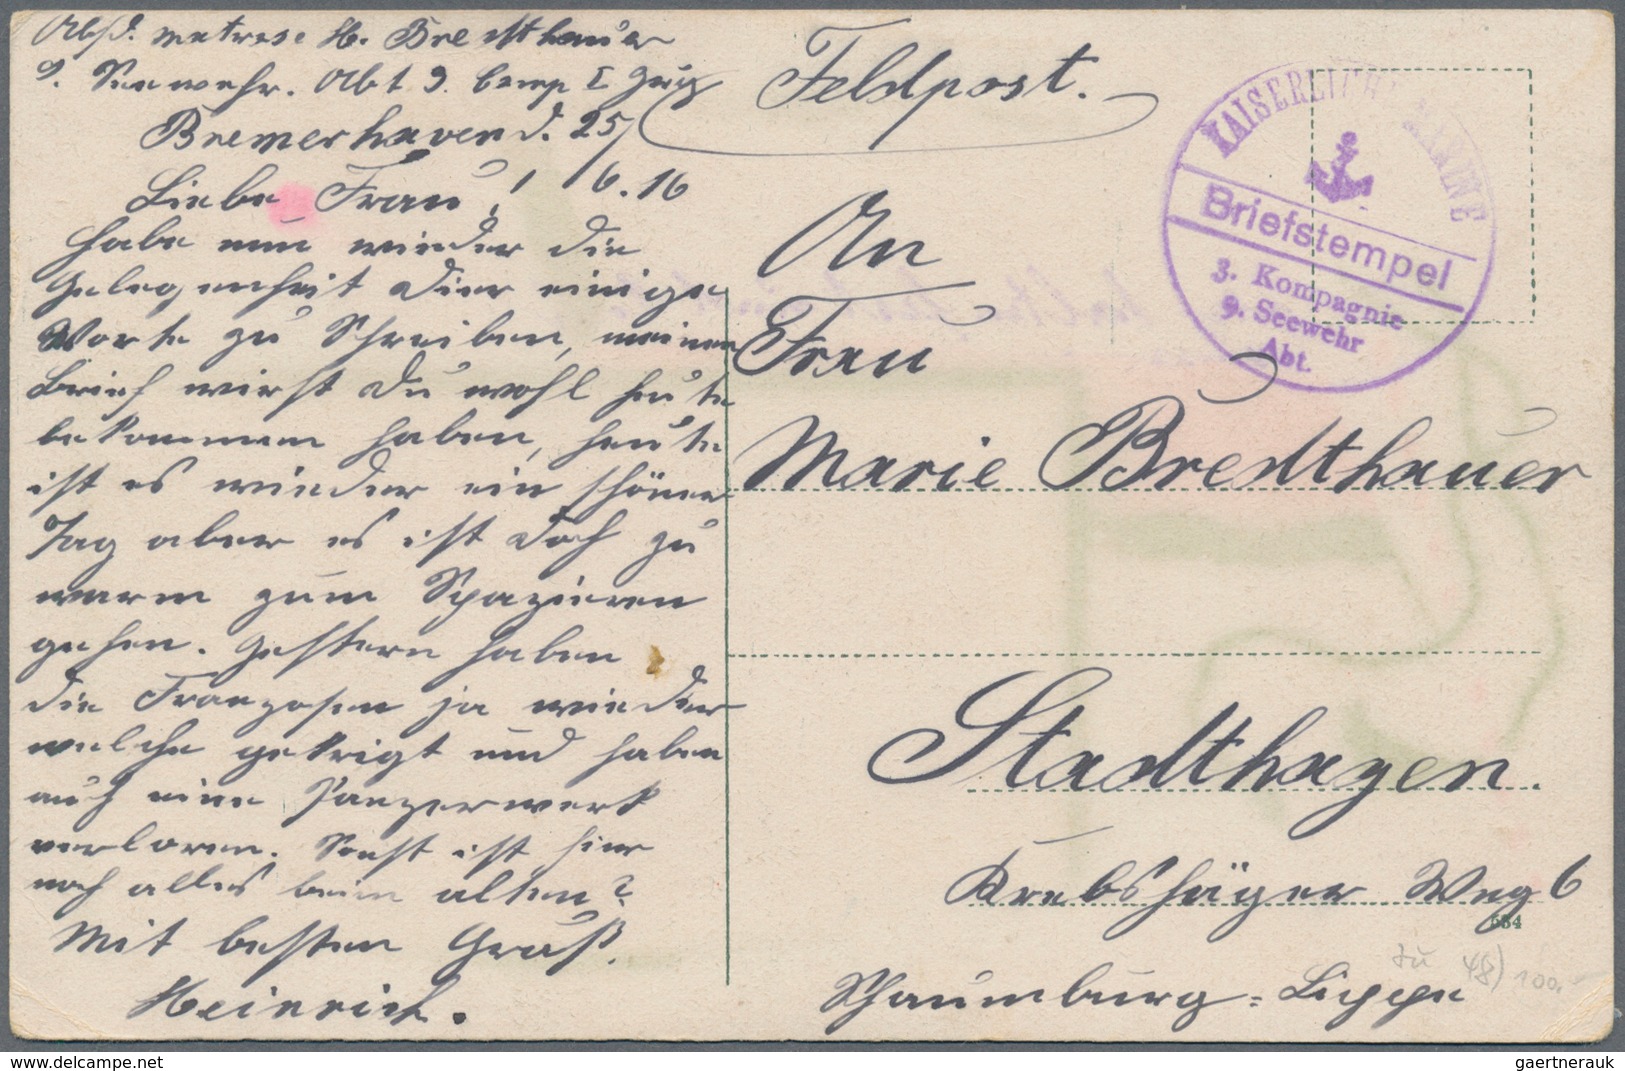 Abs. Matrose H. Bredthauer
9. Seewehr. Abt 3. Comp I Zug
Bremerhaven d. 25/
6. 16
Liebe Frau!
Habe nun wieder die
Gelegenheit Dier einige
Worte zu Schreiben, meinen
Brief wirst Du wohl heute
bekommen haben, heute
ist es wieder ein schöner
Tag aber es ist doch zu
warm zum Spazieren
gehen. Gestern haben
die Franzosen ja wieder
welche gekrigt und haben
auch eine Panzerwerk
verloren. Sonst ist hier
noch alles beim alten?
Mit besten Gruß.
Heinrich.
Feldpost.
KAISERLICHE MARINE
Briefstempel
3. Kompagnie
9. Seewehr
Abt.
An
Frau
Marie Bredthauer
Stadthagen.
Krebshäger Weg 6
684
Schaumburg-Lippe
zu 48) 100.-
www.delcampe.net
gaertnerauk